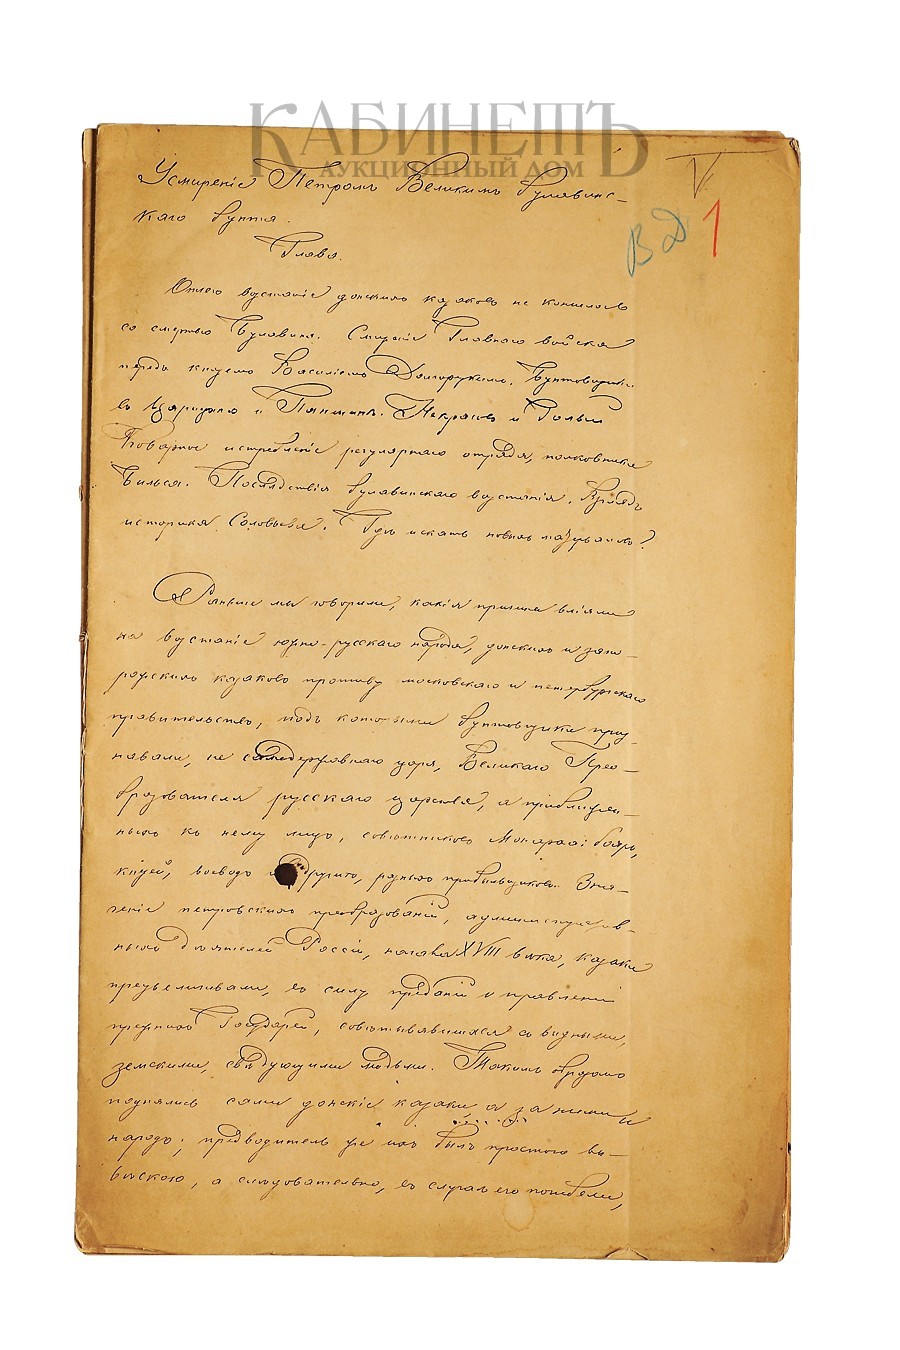 КАБИНЕТЪ
АУКЦИОННЫЙ ДОМ
Усмиреніе Петромъ Великимъ булавинс-
каго бунта.
V
ВД 1
Глава.
возстаніе донскихъ казаковъ не кончилось
со смертью Булавина. Главнаго войска
передъ княземъ Василіемъ Долгорукимъ. Бунтовщики
въ Царицынѣ и Паншинѣ. Некрасовъ и Голый
истребленіе регулярнаго отряда, полковника
Бильса. Послѣдствія булавинскаго возстанія. Взглядъ
историка Соловьева. Гдѣ искать новыхъ
Раньше мы говорили, какія причины вліяли
на возстаніе южно-русскаго народа, донскихъ и запо-
рожскихъ казаковъ противу московскаго и петербургскаго
правительствъ, подъ которыми бунтовщики приз-
навали, не самодержавнаго царя, Великаго Прео-
бразователя русскаго царства, а приближен-
ныхъ къ нему лицъ, совѣтниковъ Монарха: бояръ,
князей, воеводъ и другихъ, разныхъ прибыльщиковъ. Зна-
ченіе петровскихъ преобразованій, административ-
ныхъ дѣятелей Россіи, начала XVIII вѣка, казаки
преувеличивали, въ силу преданій о правленіи
прежнихъ Государей, совѣтывавшихся съ видными,
земскими, свѣдующими людьми. Такимъ образомъ
поднялись сами донскіе казаки, а за ними и
народъ; предводитель же ихъ былъ простого
а слѣдовательно, въ случаѣ его погибели,